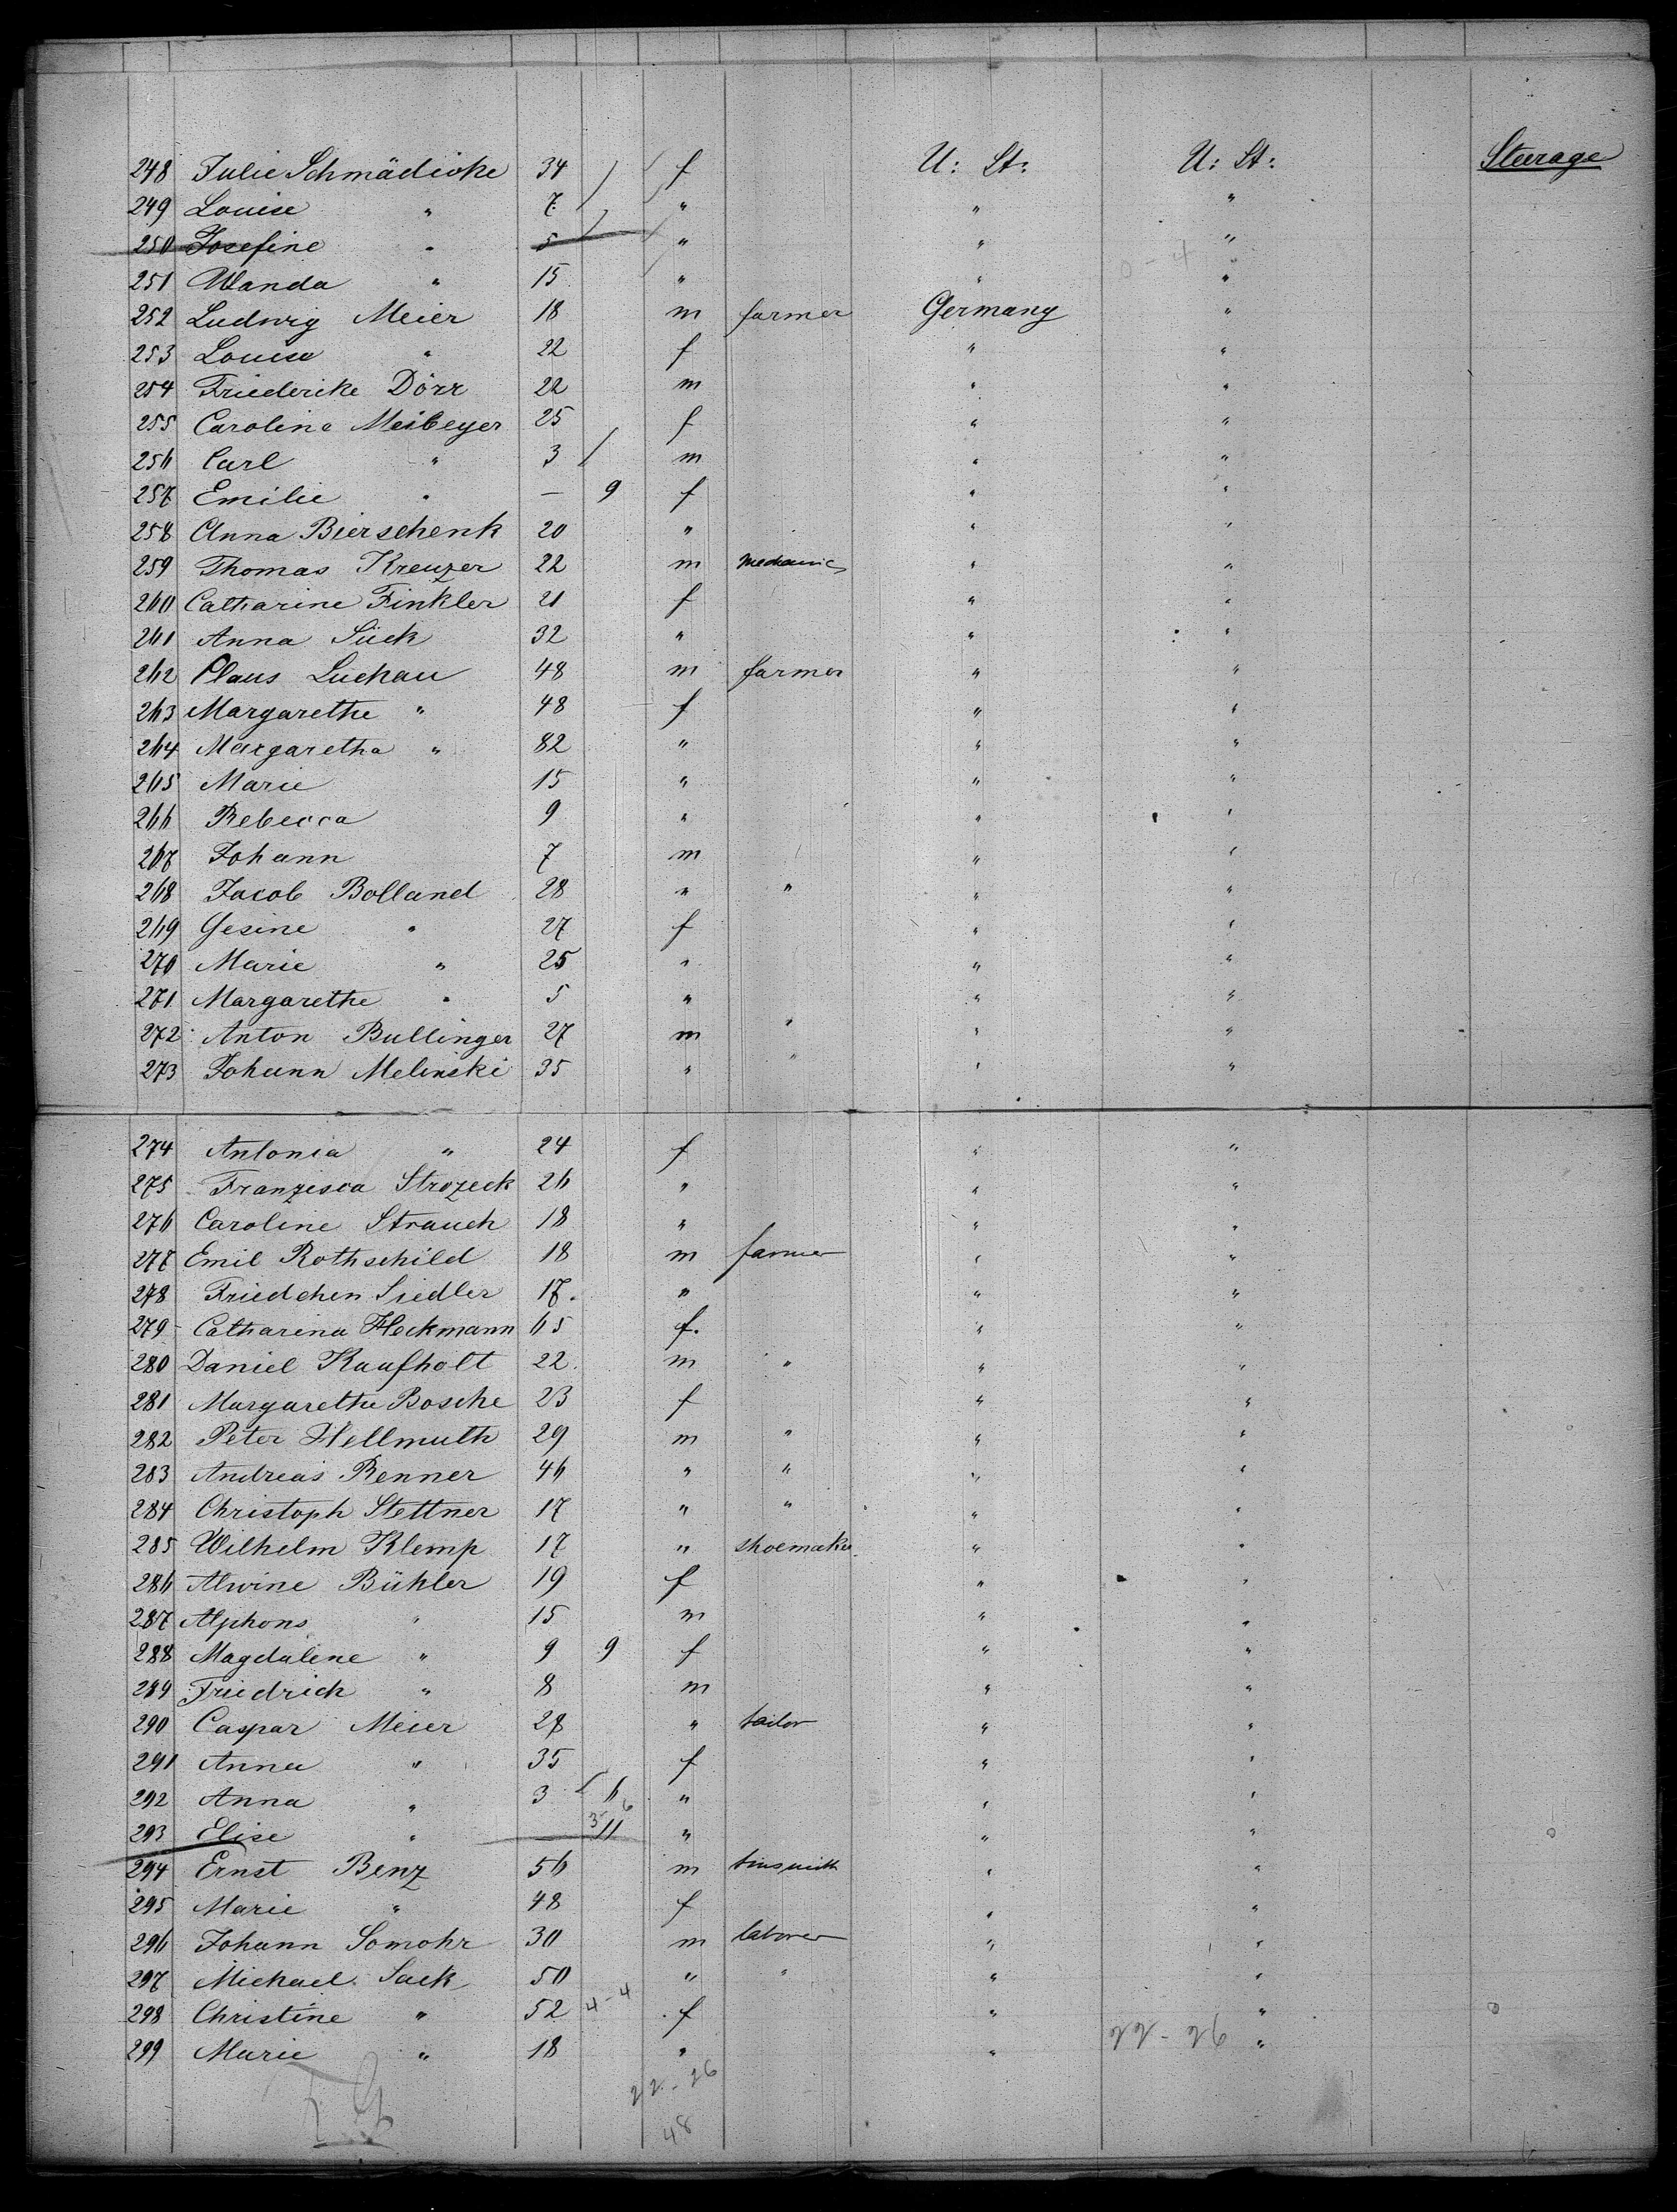 248 Julie Schmädicke 34 / f U: St: U: St: Steerage
249 Louise " 7 / " " "
250 Josefine " 5 / " " "
251 Wanda " 15 " " " 0-4
252 Ludwig Meier 18 m farmer Germany "
253 Louise " 22 f " "
254 Friederike Dörr 22 m " "
255 Caroline Meibeyer 25 f " "
256 Carl " 3 / m " "
257 Emilie " — 9 f " "
258 Anna Bierschenk 20 " " "
259 Thomas Kreuzer 22 m mechanic " "
260 Catharine Finkler 21 f " "
261 Anna Sück 32 " " "
262 Claus Luchau 48 m farmer " "
263 Margarethe " 48 f " "
264 Margaretha " 82 " " "
265 Marie 15 " " "
266 Rebecca 9 " " "
267 Johann 7 m " "
268 Jacob Bolland 28 " " " "
269 Gesine " 27 f " "
270 Marie " 25 " " "
271 Margarethe " 5 " " "
272 Anton Bullinger 27 m " " "
273 Johann Melinski 35 " " " "
274 Antonia " 24 f " "
275 Franzisca Strozeck 26 " " "
276 Caroline Strauch 18 " " "
277 Emil Rothschild 18 m farmer " "
278 Friedchen Siedler 17. " " "
279 Catharina Heckmann 65 f. " "
280 Daniel Kaufholt 22. m " " "
281 Margarethe Bosche 23 f " "
282 Peter Hellmuth 29 m " " "
283 Andreas Renner 46 " " " "
284 Christoph Stettner 17 " " " "
285 Wilhelm Klemp 17 " shoemaker " "
286 Alwine Bühler 19 f " "
287 Alphons " 15 m " "
288 Magdalene " 9 9 f " "
289 Friedrich " 8 m " "
290 Caspar Meier 28 " tailor " "
291 Anna " 35 f " "
292 Anna " 3 / 6 " " "
293 Elise " 11 " " " 3-6
294 Ernst Benz 56 m tinsmith " "
295 Marie " 48 f " "
296 Johann Somohr 30 m laborer " "
297 Michael Sack 50 " " " "
298 Christine " 52 4-4 f " "
299 Marie " 18 " " "
22-26
22-26
48